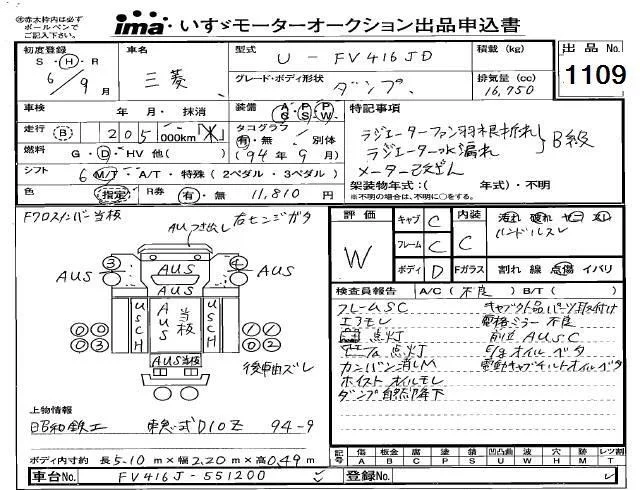 ※赤太枠内は必ず
ボールペンで
ご記入下さい。
ima いすゞモーターオークション出品申込書
初度登録 S・H・R 6/9月
車名 三菱
型式 U-FV416JD
グレード・ボディ形状 ダンプ
積載 (kg)
排気量 (cc) 16,750
出品No. 1109
車検 年 月・抹消
装備 AC PS PW
走行 (B) 205,000km
タコグラフ 有・無 別体 (94年9月)
燃料 G・D・HV 他( )
シフト 6 M/T A/T・特殊(2ペダル・3ペダル)
色 (指定) R券 有・無 11,810 円
特記事項
ラジエーターファン羽根折れ
ラジエーター水漏れ
メーター改ざん
B級
架装物年式:( 年式)・不明
※不明の場合は、不明に○をする。
Fフロスバンパー当板
AUつき出し
右センジガタ
AUS AUS AUS
③ ④
USCH AUS当板 USCH
AUS当板
後車由ズレ
評価 W
キャブ C
フレーム C
ボディ D
内装 C
汚れ 破れ ヤニ スレ
ハンドルスレ
Fガラス 割れ 線 点傷 イバリ
検査員報告 A/C(不良) B/T( )
フレームSC
エアモレ
点灯
点灯
カンバン消しM
ホイストオイルモレ
ダンプ自然降下
キャブ欠品パーツ取付け
電格ミラー不良
前立AUSC
E/gオイルベタ
電動キャブチルトオイルベタ
上物情報
昭和鉄工 東急式D10Z 94-9
ボディ内寸約 長5.10m×幅2.20m×高0.49m
記号 傷 A 板金 B 腐 C 塗 P 錆 S 凹凸曲 U 波 W 穴 H 跡 M レツ割 T
車台No. FV416J-551200
登録No.